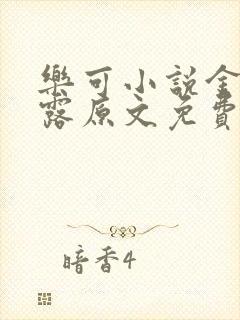 樂可小說金
露原文免費
暗香4